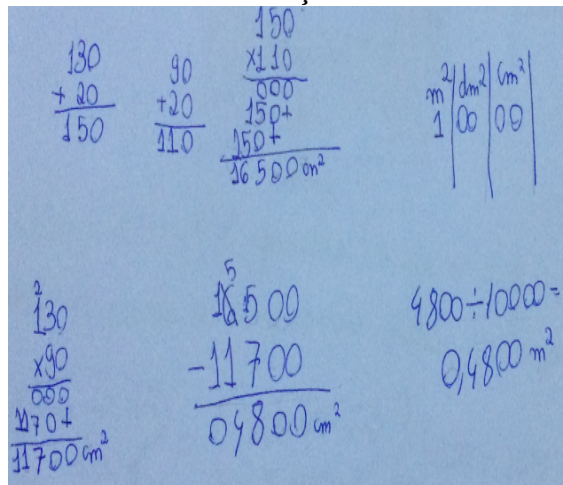 130
+ 20
150
90
+20
110
150
x110
000
150+
150+
16500 cm²
m² dm² cm²
1 00 00
2
130
x90
000
1170+
11700 cm²
5
16500
-11700
04800 cm²
4800÷10000=
0,4800 m²